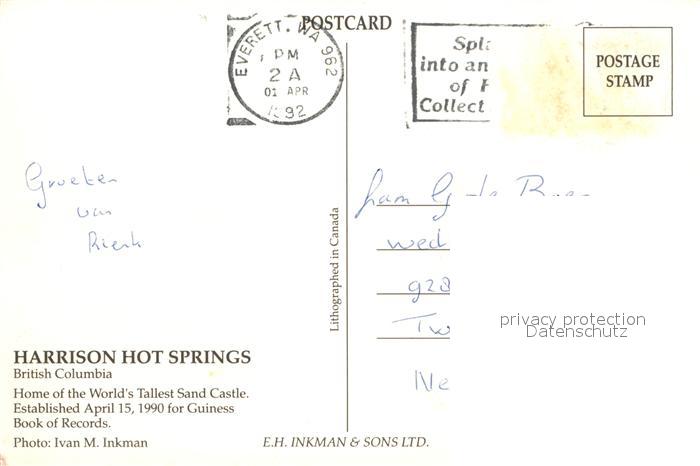 POSTCARD
EVERETT, WA 982
PM
2 A
01 APR
1992
Spl
into an
of
Collect
POSTAGE
STAMP
Groeten
van
Rienk
Lithographed in Canada
fam
wed
928
Tw
Ne
privacy protection
Datenschutz
HARRISON HOT SPRINGS
British Columbia
Home of the World's Tallest Sand Castle.
Established April 15, 1990 for Guiness
Book of Records.
Photo: Ivan M. Inkman
E.H. INKMAN & SONS LTD.